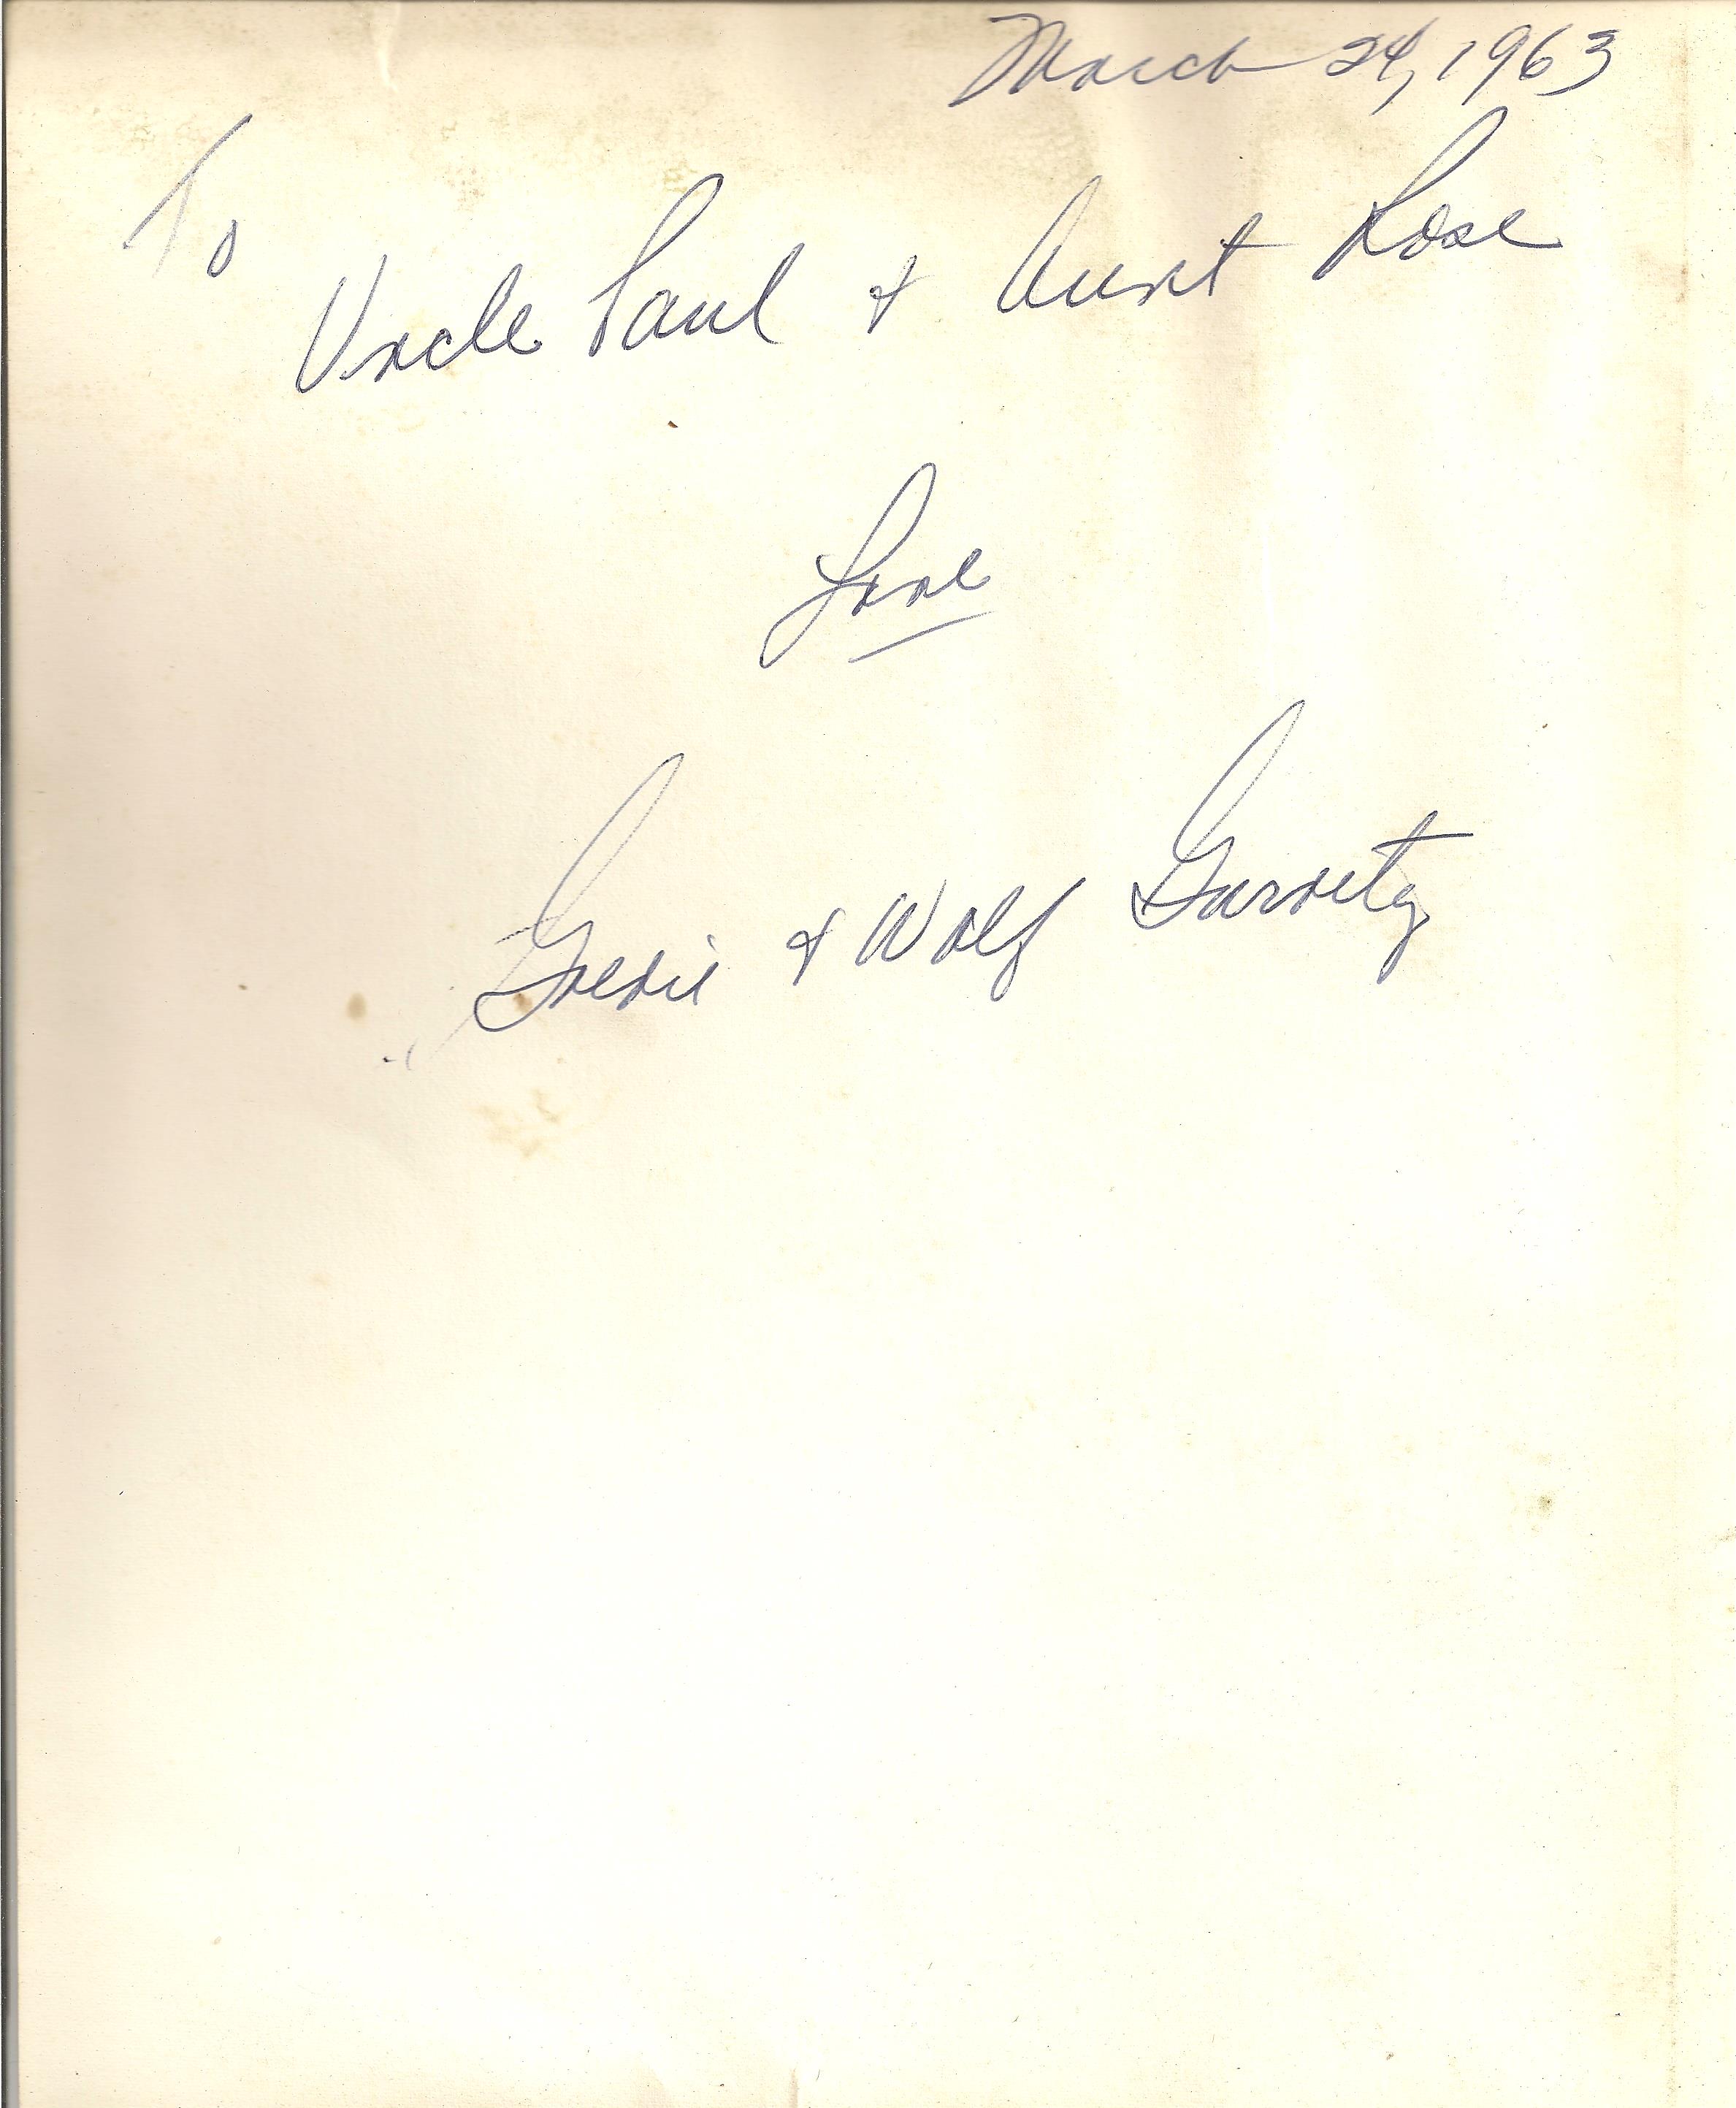 March 24, 1963
To
Uncle Paul & Aunt Rose
Love
Goldie & Wolf